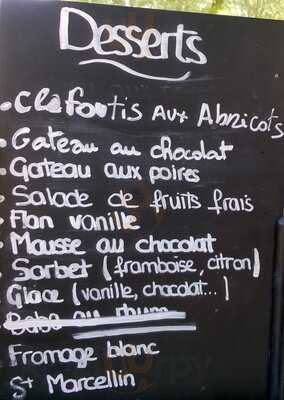 Desserts
• Clafoutis Aux Abricots
• Gateau au chocolat
• Gateau aux poires
• Salade de fruits frais
• Flan vanille
• Mousse au chocolat
• Sorbet (framboise, citron)
Glace (vanille, chocolat...)
Baba au rhum
• Fromage blanc
• St Marcellin